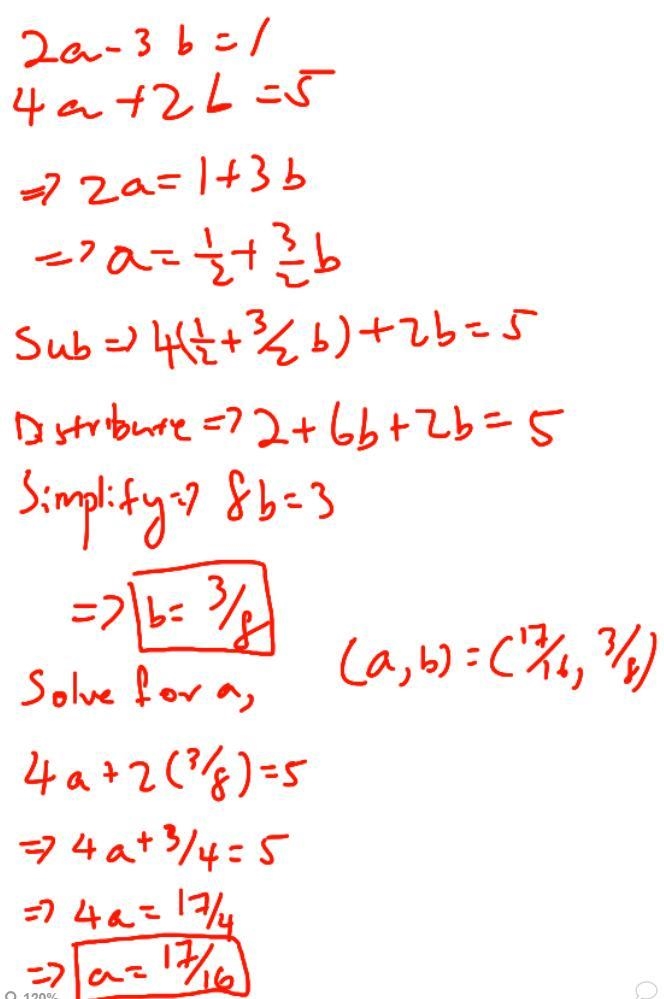 2a - 3b = 1
4a + 2b = 5
=> 2a = 1 + 3b
=> a = 1/2 + 3/2 b
Sub => 4(1/2 + 3/2 b) + 2b = 5
Distribute => 2 + 6b + 2b = 5
Simplify => 8b = 3
=> b = 3/8
Solve for a,
(a, b) = (17/16, 3/8)
4a + 2(3/8) = 5
=> 4a + 3/4 = 5
=> 4a = 17/4
=> a = 17/16
120%